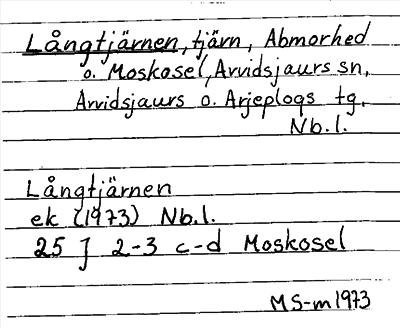 Långtjärnen, tjärn, Abmorhed
o. Moskosel, Arvidsjaurs sn,
Arvidsjaurs o. Arjeplogs tg.
Nb.l.
Långtjärnen
ek (1973) Nb.l.
25 J 2-3 c-d Moskosel
MS-m 1973